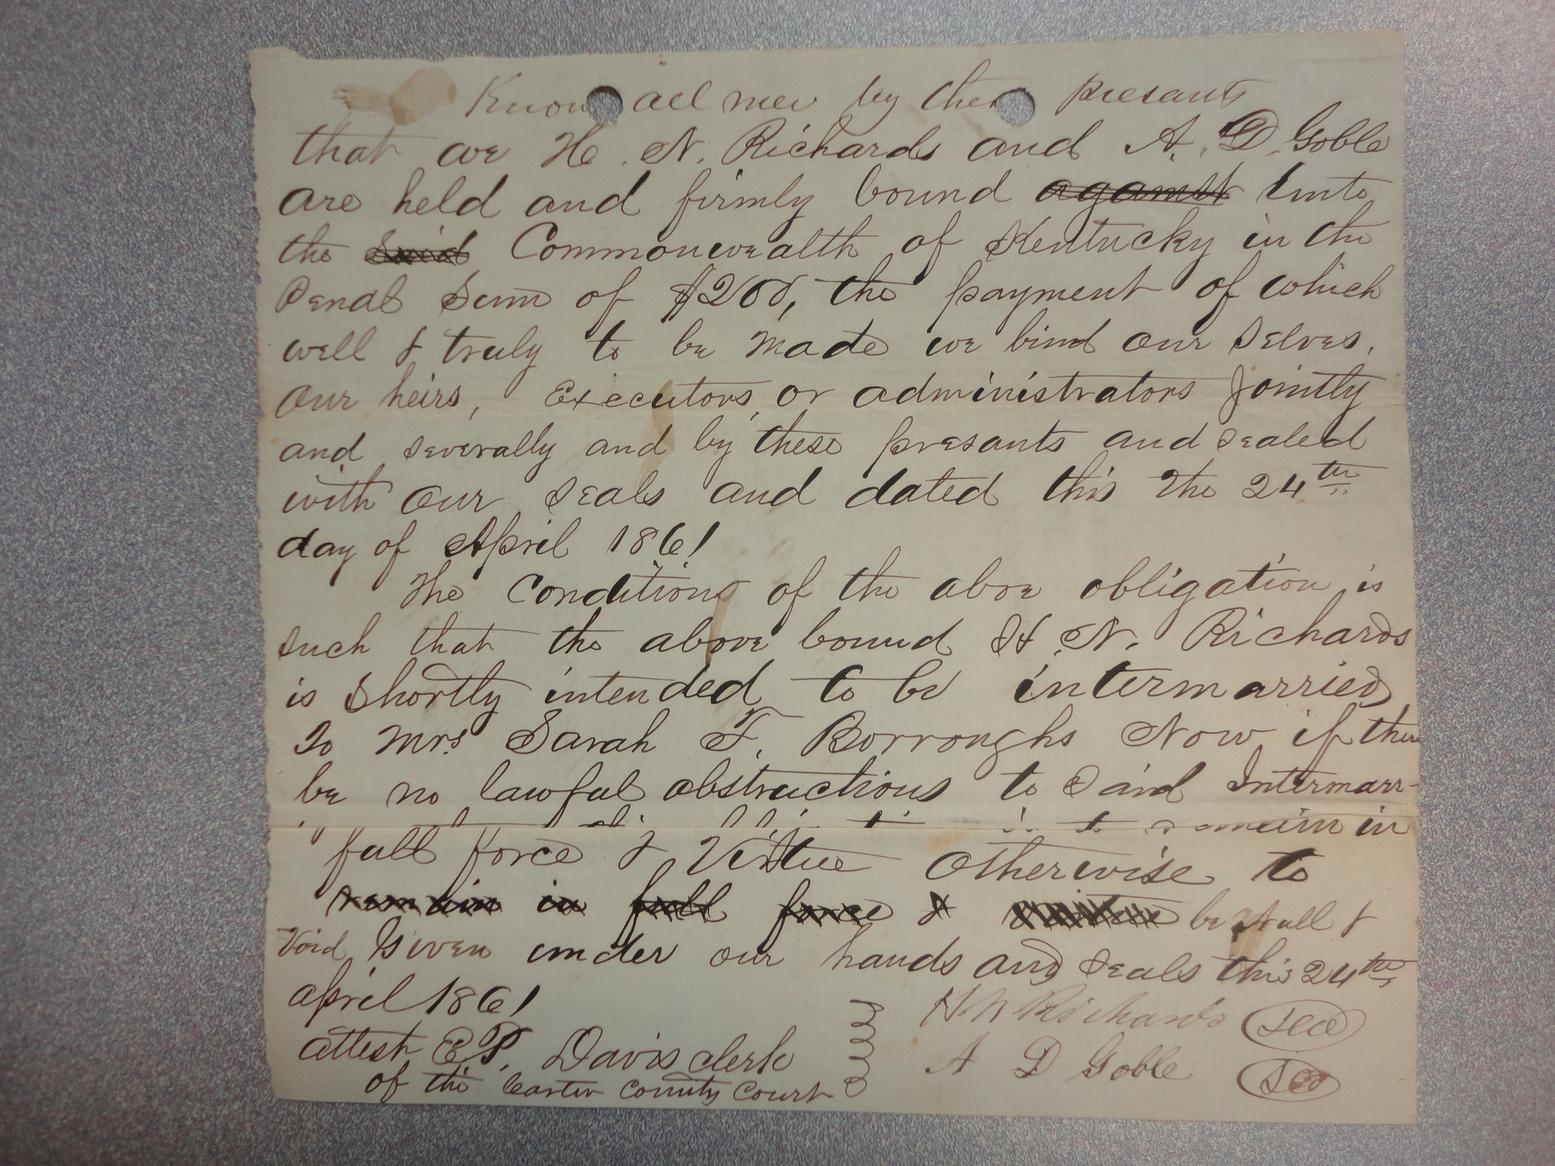 Know all men by these presants
that we H. N. Richards and A. D. Goble
are held and firmly bound against unto
the Said Commonwealth of Kentucky in the
Penal Sum of $200, the payment of which
well & truly to be made we bind our selves,
our heirs, Executors, or administrators Jointly
and severally and by these presants and sealed
with our seals and dated this the 24th
day of April 1861
The Conditions of the above obligation is
such that the above bound H. N. Richards
is shortly intended to be intermarried
To Mrs Sarah F. Borroughs Now if there
be no lawful obstructions to Said Intermarr-
remain in
full force & Virtue otherwise to
remain in full force & virtue be Null &
Void Given under our hands and seals this 24th
april 1861
H N Richards Seal
attest E P. Davis clerk
A D Goble Seal
of the Carter County Court